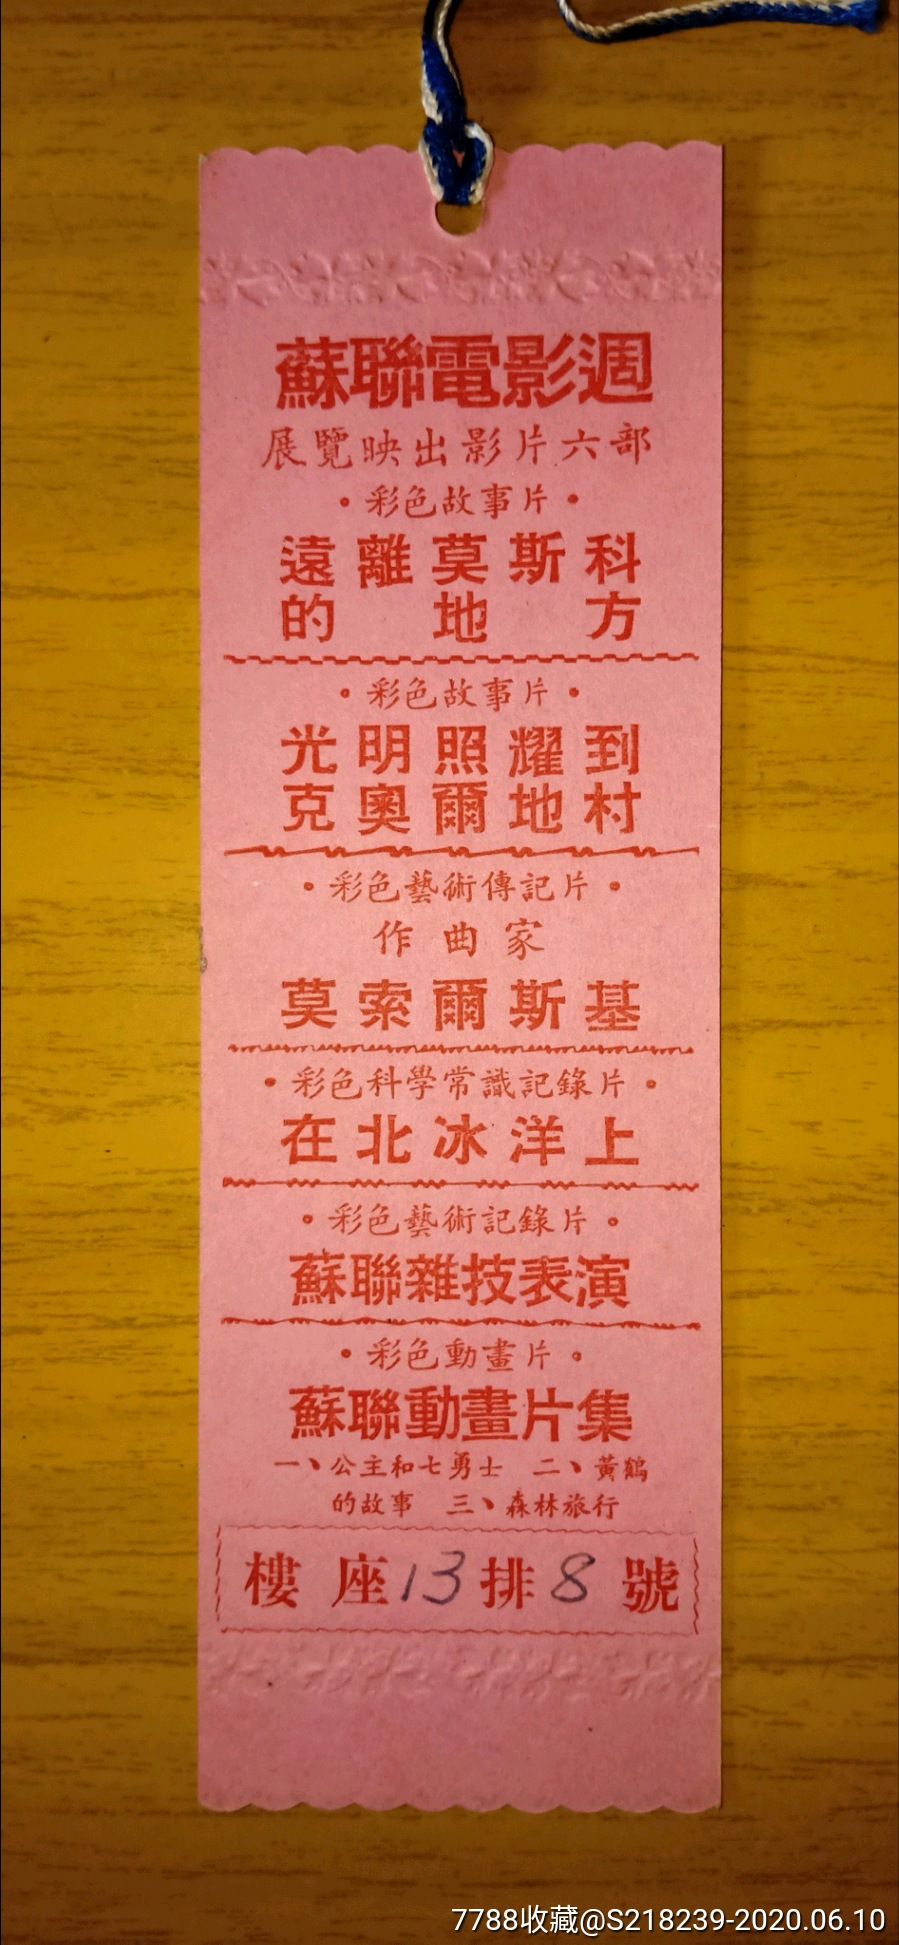 蘇聯電影週
展覽映出影片六部
·彩色故事片·
遠離莫斯科
的地方
·彩色故事片·
光明照耀到
克奧爾地村
·彩色藝術傳記片·
作曲家
莫索爾斯基
·彩色科學常識記錄片·
在北冰洋上
·彩色藝術記錄片·
蘇聯雜技表演
·彩色動畫片·
蘇聯動畫片集
一、公主和七勇士 二、黃鶴
的故事 三、森林旅行
樓座13排8號
7788收藏@S218239-2020.06.10